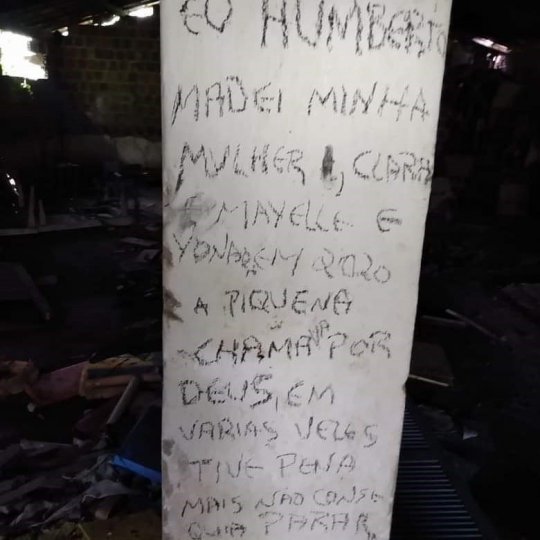 EU HUMBERTO
MADEI MINHA
MULHER, CLARA
E MAYELLE E
YONARA EM 2020
A PIQUENA
CHAMAVA POR
DEUS, EM
VARIAS VEZES
TIVE PENA
MAIS NÃO CONSE
QUIA PARAR.